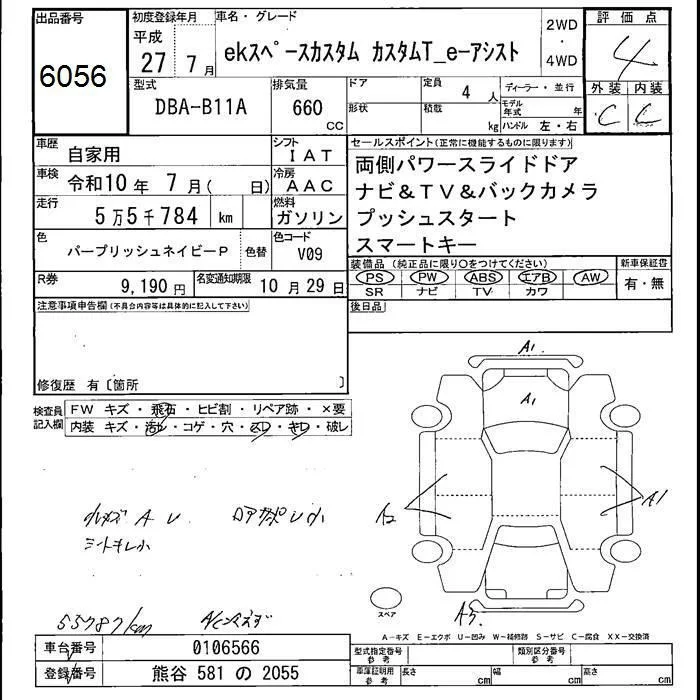 出品番号
6056
初度登録年月
平成
27 7月
車名・グレード
ekスペースカスタム カスタムT_e-アシスト
2WD
・
4WD
評価点
4
外装 内装
C C
型式
DBA-B11A
排気量
660
CC
ドア
形状
定員
4人
積載
kg
ディーラー・並行
モデル年式 年
ハンドル 左・右
車歴
自家用
シフト
IAT
車検
令和10年 7月( 日)
冷房
AAC
走行
5万5千784 km
燃料
ガソリン
色
パープリッシュネイビーP
色替
色コード
V09
R券
9,190円
名変通知期限
10月29日
セールスポイント(正常に機能するものに限ります)
両側パワースライドドア
ナビ&TV&バックカメラ
プッシュスタート
スマートキー
装備品(純正品に限り○をつけてください)
PS PW ABS エアB AW
SR ナビ TV カワ
新車保証書
有・無
注意事項申告欄(不具合内容等は具体的に記入して下さい)
後日品
修復歴 有〔箇所 〕
検査員
記入欄
FW キズ・飛石・ヒビ割・リペア跡・×要
内装 キズ・汚レ・コゲ・穴・スレ・キレ・破レ
A1
A1
A2
A1
小キズ A U
シートキレ小
A3
スペア
55787km
A-キズ E-エクボ U-凹み W-補修跡 S-サビ C-腐食 XX-交換済
車台番号
0106566
登録番号
熊谷 581 の 2055
型式指定番号
参考
類別区分番号
参考
車庫証明用
参考
長さ cm
幅 cm
高さ cm